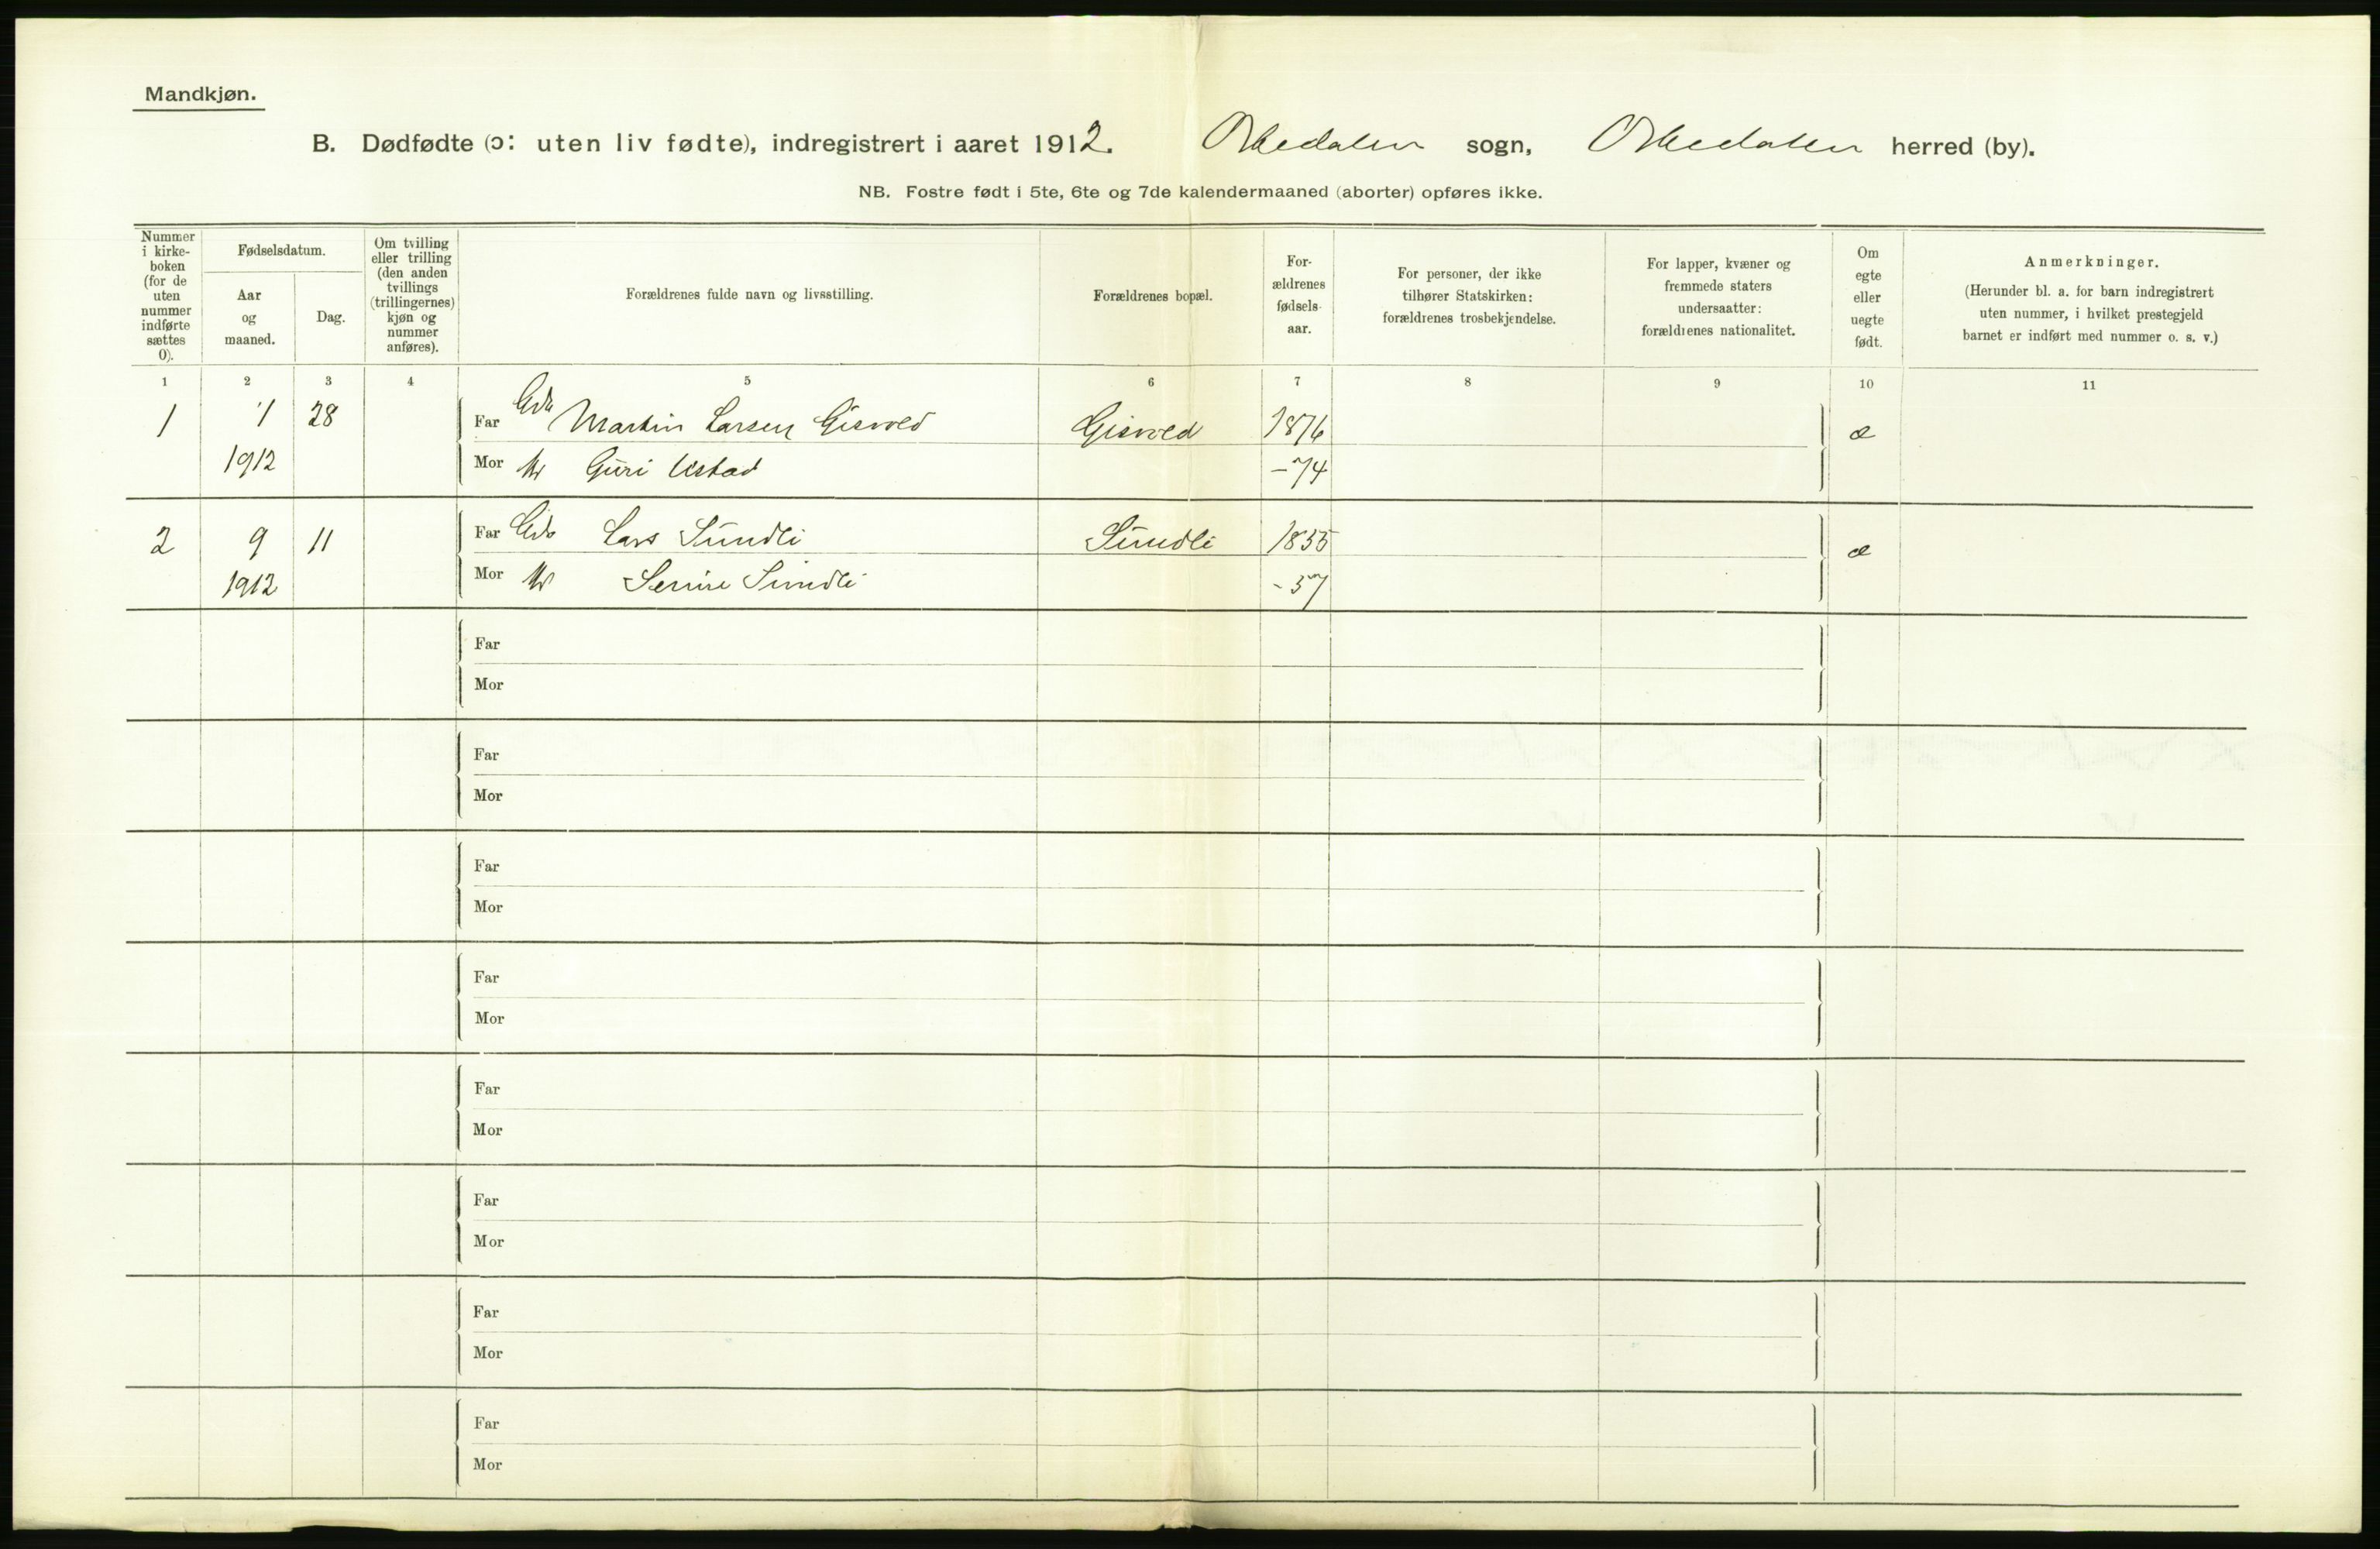 Mandkjøn.
B. Dødfødte (ɔ: uten liv fødte), indregistrert i aaret 1912. Orkedalen sogn, Orkedalen herred (by).
NB. Fostre født i 5te, 6te og 7de kalendermaaned (aborter) opføres ikke.
Nummer i kirke-boken (for de uten nummer indførte sættes 0).
Fødselsdatum.
Aar og maaned.
Dag.
Om tvilling eller trilling (den anden tvillings (trillingernes) kjøn og nummer anføres).
Forældrenes fulde navn og livsstilling.
Forældrenes bopæl.
For-ældrenes fødsels-aar.
For personer, der ikke tilhører Statskirken: forældrenes trosbekjendelse.
For lapper, kvæner og fremmede staters undersaatter: forældrenes nationalitet.
Om egte eller uegte født.
Anmerkninger.
(Herunder bl. a. for barn indregistrert uten nummer, i hvilket prestegjeld barnet er indført med nummer o. s. v.)
1 2 3 4 5 6 7 8 9 10 11
1 1 28 Far Gdr Martin Larsen Gisvold Gisvold 1876 æ
1912 Mor Guri Ustad -74
2 9 11 Far Lars Sundli Sundli 1855 æ
1912 Mor Serine Sundli -57
Far
Mor
Far
Mor
Far
Mor
Far
Mor
Far
Mor
Far
Mor
Far
Mor
Far
Mor